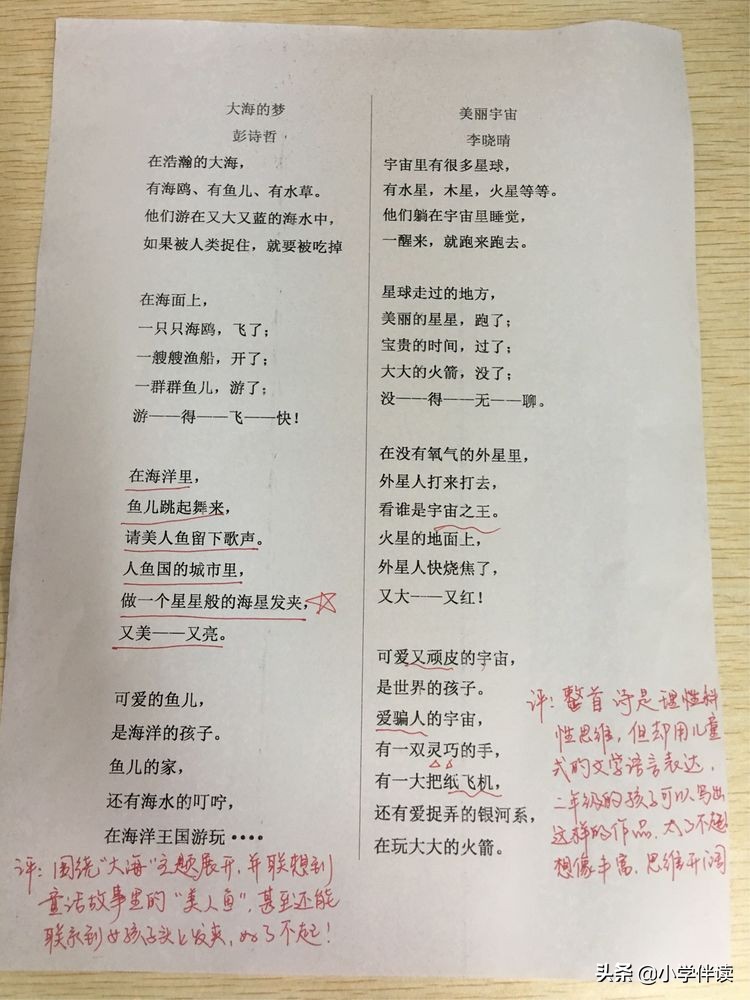 大海的梦
彭诗哲
在浩瀚的大海，
有海鸥、有鱼儿、有水草。
他们游在又大又蓝的海水中，
如果被人类捉住，就要被吃掉
在海面上，
一只只海鸥，飞了；
一艘艘渔船，开了；
一群群鱼儿，游了；
游——得——飞——快！
在海洋里，
鱼儿跳起舞来，
请美人鱼留下歌声。
人鱼国的城市里，
做一个星星般的海星发夹，
又美——又亮。
可爱的鱼儿，
是海洋的孩子。
鱼儿的家，
还有海水的叮咛，
在海洋王国游玩····
评：围绕“大海”主题展开，并联想到
童话故事里的“美人鱼”，甚至还能
联系到女孩子头上发夹，了不起！
美丽宇宙
李晓晴
宇宙里有很多星球，
有水星，木星，火星等等。
他们躺在宇宙里睡觉，
一醒来，就跑来跑去。
星球走过的地方，
美丽的星星，跑了；
宝贵的时间，过了；
大大的火箭，没了；
没——得——无——聊。
在没有氧气的外星里，
外星人打来打去，
看谁是宇宙之王。
火星的地面上，
外星人快烧焦了，
又大——又红！
可爱又顽皮的宇宙，
是世界的孩子。
爱骗人的宇宙，
有一双灵巧的手，
有一大把纸飞机，
还有爱捉弄的银河系，
在玩大大的火箭。
评：整首诗是理性科
性思维，但却用儿童
式的文学语言表达，
二年级的孩子可以写出
这样的作品，太了不起
想像丰富，思维开阔
头条 @小学伴读